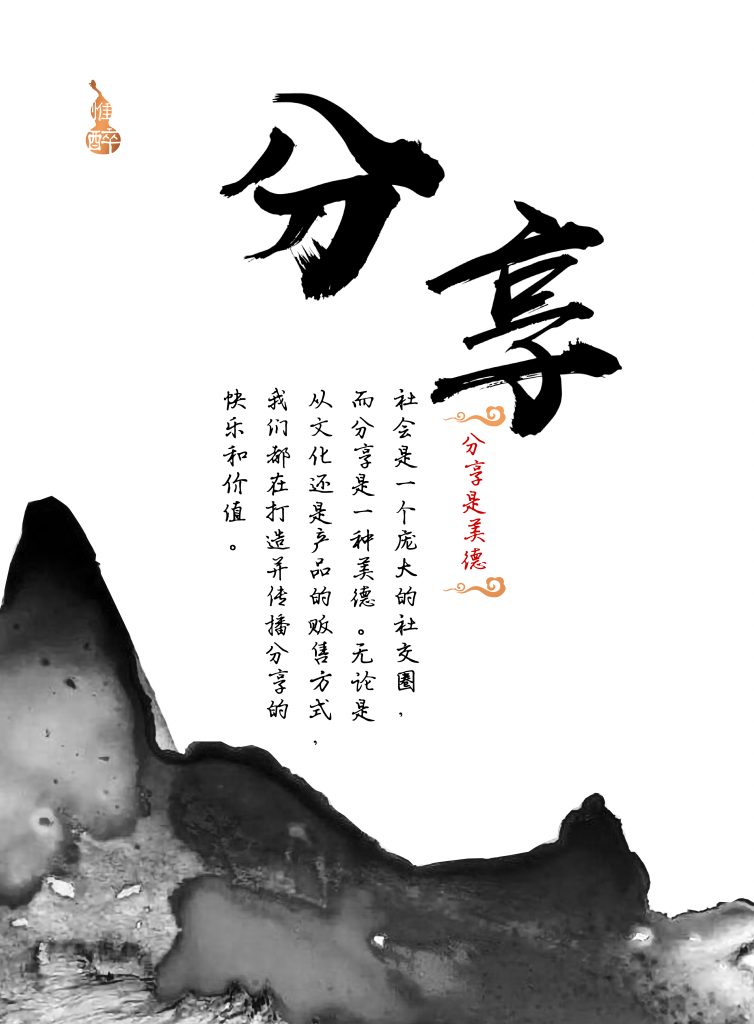 惟
醉
分享
分享是美德
社会是一个庞大的社交圈，
而分享是一种美德。无论是
从文化还是产品的贩售方式，
我们都在打造并传播分享的
快乐和价值。